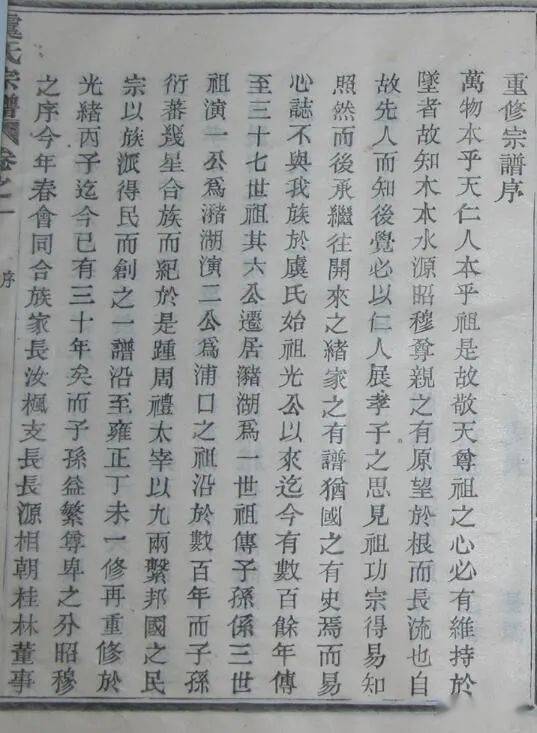 重修宗譜序
萬物本乎天仁人本乎祖是故敬天尊祖之心必有維持於
墜者故知木本水源昭穆尊親之有原望於根而長流也自
故先人而知後覺必以仁人展孝子之思見祖功宗得易知
照然而後承繼往開來之緒家之有譜猶國之有史焉而易
心誌不與我族於虞氏始祖光公以來迄今有數百餘年傳
至三十七世祖其六公遷居瀦湖爲一世祖傳子孫係三世
祖演一公爲瀦湖演二公爲浦口之祖沿於數百年而子孫
衍蕃幾星合族而紀於是踵周禮太宰以九兩繫邦國之民
宗以族派得民而創之一譜沿至雍正丁未一修再重修於
光緒丙子迄今已有三十年矣而子孫益繁尊卑之分昭穆
之序今年春會同合族家長汝楓支長長源相朝桂林董事
虞氏宗譜
卷之一
序